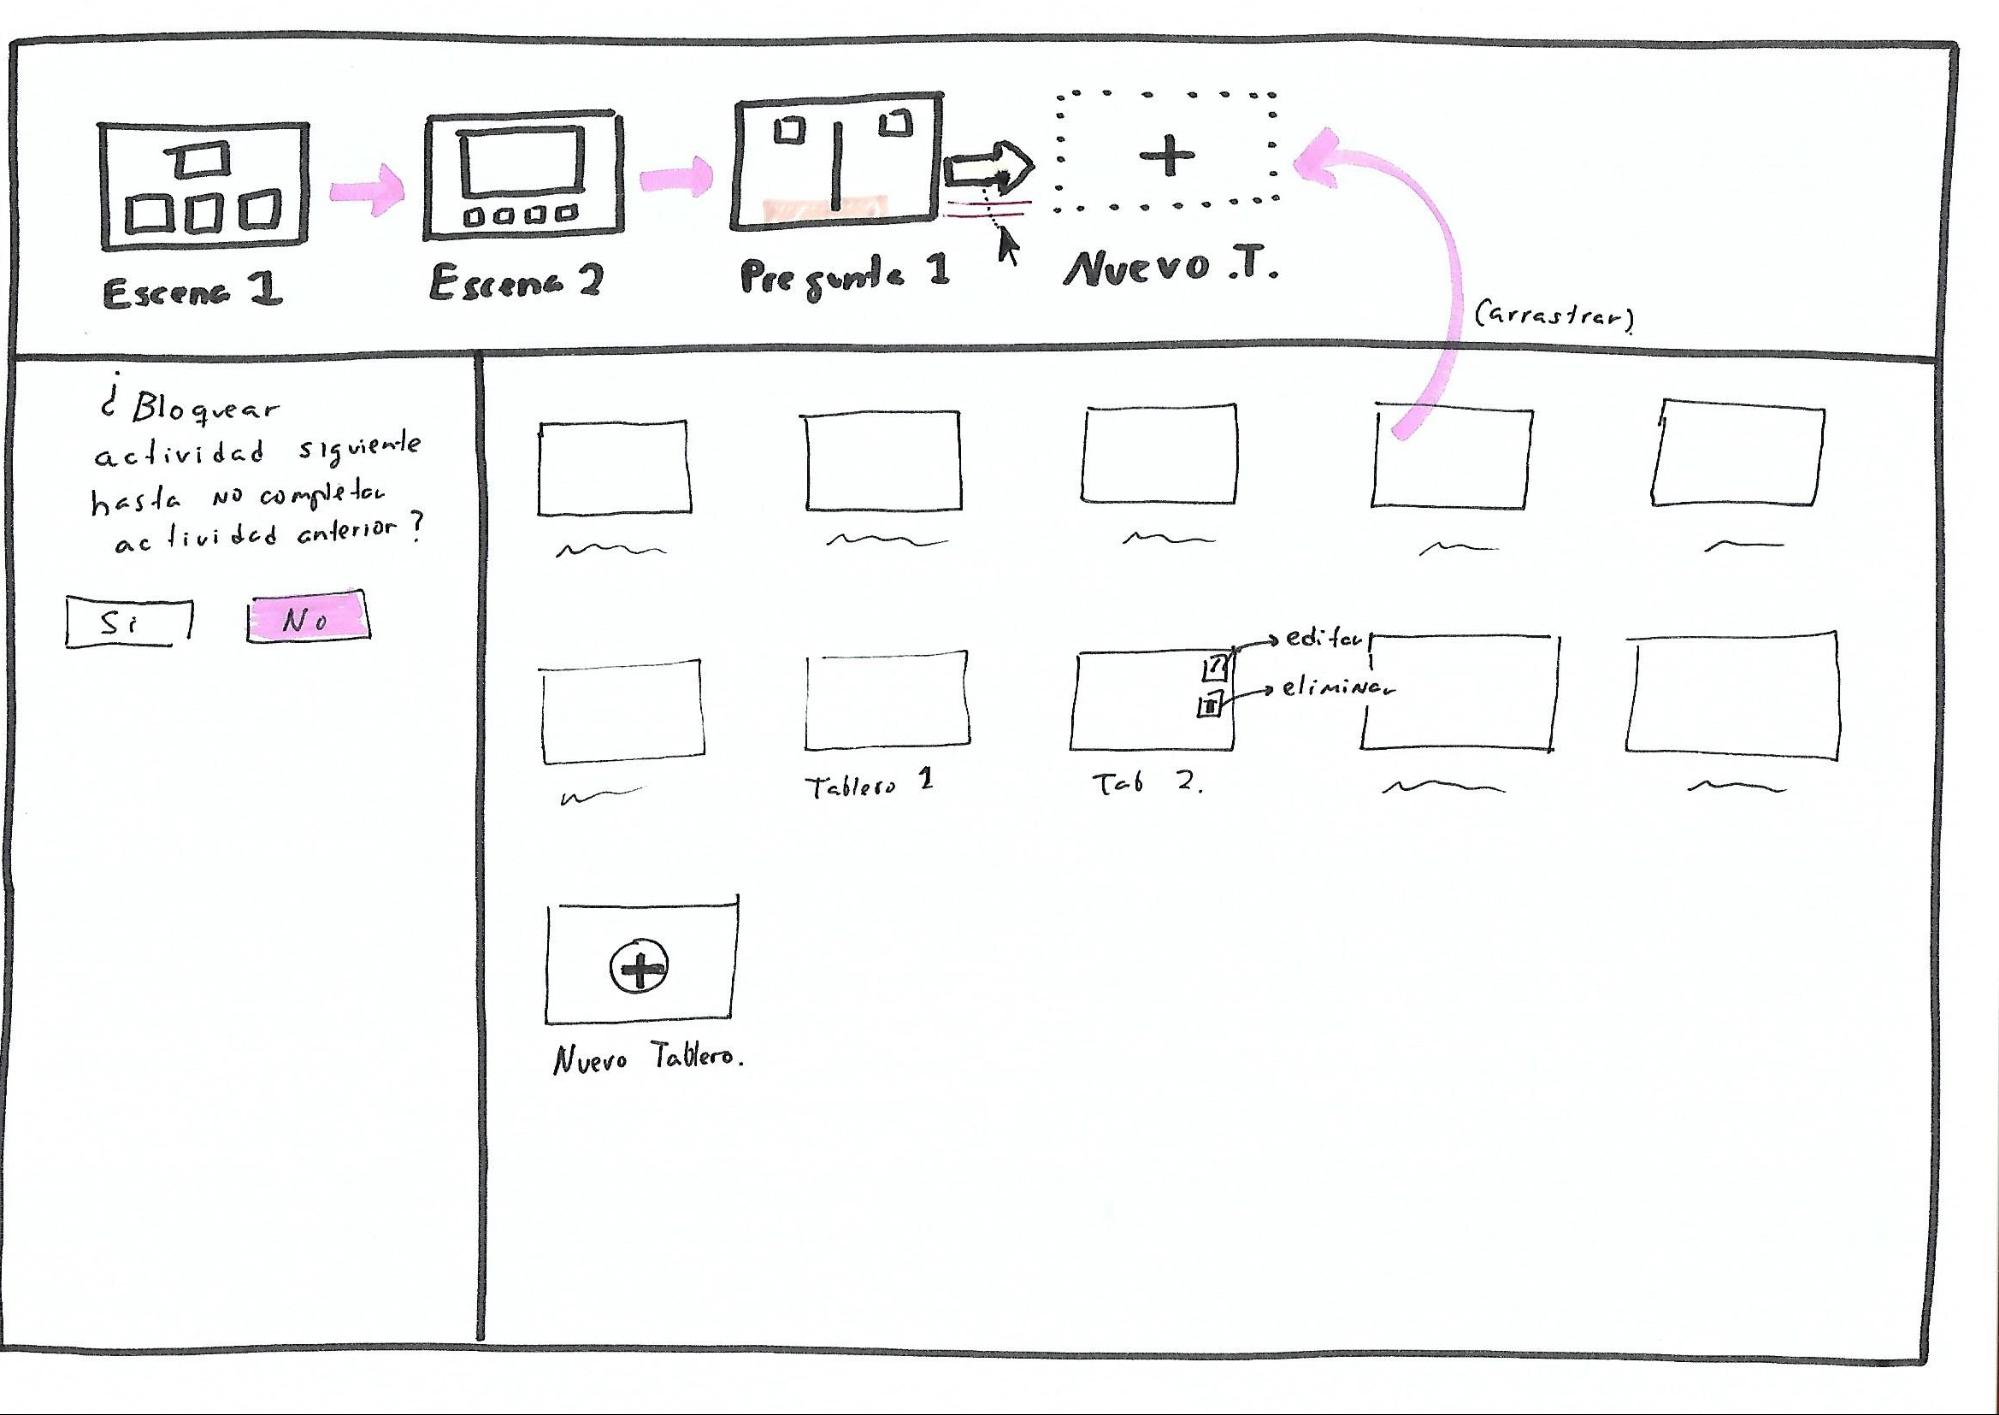 Escena 1
Escena 2
Pregunta 1
Nuevo .T.
(arrastrar)
¿Bloquear
actividad siguiente
hasta no completar
actividad anterior?
Si
No
editar
eliminar
Tablero 1
Tab 2.
Nuevo Tablero.